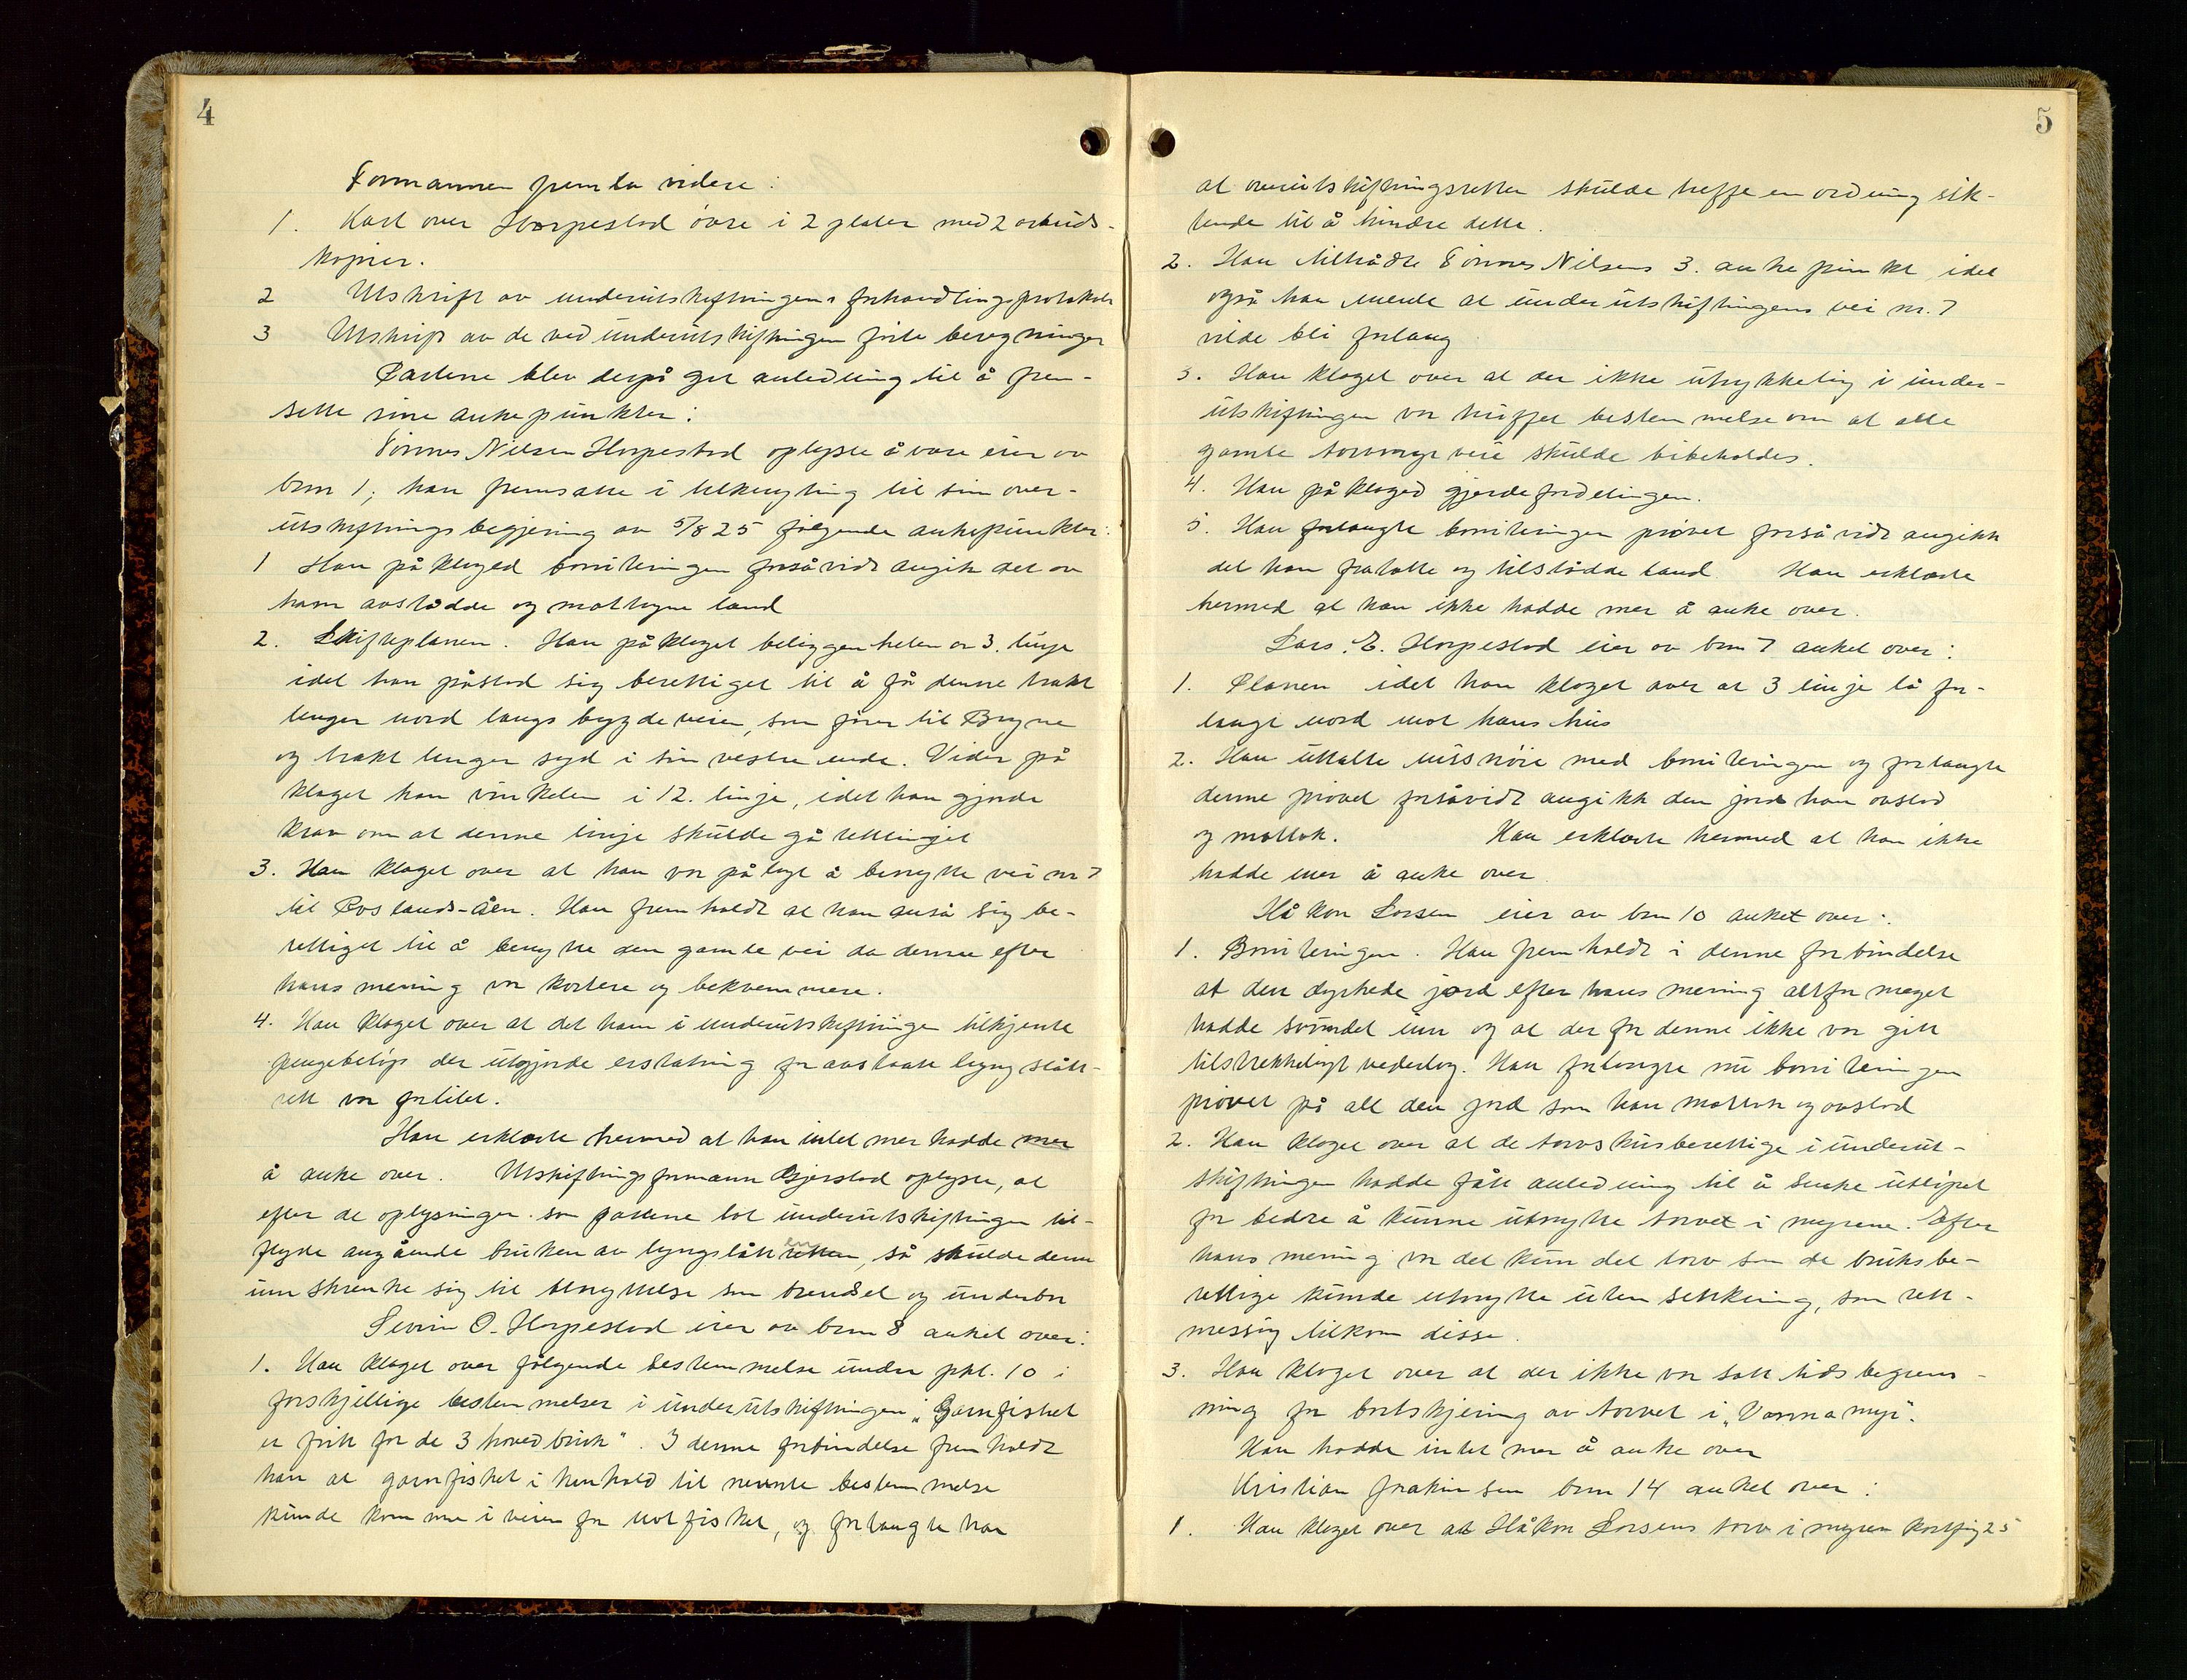 4
Formannen fremla videre:
1. Kart over Horpestad övre i 2 plater med 2 arbeids-
kopier.
2 Utskrift av underutskiftningens forhandlingsprotokoll
3 Utskrift av de ved underutskiftningen förte beregninger
Partene blev derpå git anledning til å frem-
sette sine ankepunkter:
Tönnes Nilsen Horpestad oplyste å være eier av
brn 1; han fremsatte i tilknytning til sin over-
utskiftnings begjæring av 5/8 25 følgende ankepunkter:
1 Han påklaged boniteringen forsåvidt angikk det av
ham avståдde og mottagne land
2. Skifteplanen. Han påklaget beliggenheten av 3. linje
idet han påstod sig berettiget til å få denne trakt
lenger nord langs bygdeveien, som fører til Bryne
og trakt lenger syd i sin vestre ende. Vider på
klaget han vinkelen i 12. linje, idet han gjorde
krav om at denne linje skulde gå rettlinjet
3. Han klaget over at han var pålagt å benytte vei nr 7
til Roslands-åen. Han fremholdt at han anså sig be-
rettiget til å benytte den gamle vei da denne efter
hans mening var kortere og bekvemmere.
4. Han klaget over at det ham i underutskiftningen tilkjente
pengebeløp der utgjorde erstatning for avstaatt lyngslått-
rett var forlitet.
Han erklærte hermed at han intet mer hadde mer
å anke over. Utskiftningsformann Bjerstad oplyste, at
efter de oplysninger som partene lot underutskiftningen til-
flyde angående bruken av lyngslåtten, så skulde denne
innskrenke sig til benyttelse som brensel og underbr
Sevrin O. Horpestad eier av brn 8 anket over:
1. Han klaget over følgende bestemmelse under pkt. 10 i
forskjellige bestemmelser i underutskiftningen: "Garnfisket
er fritt for de 3 hovedbruk". I denne forbindelse fremholdt
han at garnfisket i henhold til nevnte bestemmelse
kunde komme i veien for notfisket, og forlangte han
5
at overutskiftningsretten skulde treffe en ordning sik-
tende til å hindre dette.
2. Han tiltrådte Tönnes Nilsens 3. ankepunkt idet
også han mente at underutskiftningens vei nr. 7
vilde bli forlang
3. Han klaget over at der ikke uttrykkelig i under-
utskiftningen var truffet bestemmelse om at alle
gamle torvmyrveie skulde bibeholdes.
4. Han påklaged gjerdefordelingen.
5. Han forlangte boniteringen prövet forsåvidt angikk
det ham fratatte og tilstådde land Han erklærte
hermed at han ikke hadde mer å anke over.
Lars. E. Horpestad eier av brn 7 anket over:
1. Planen idet han klaget over at 3 linje lå for-
langt nord mot hans hus
2. Han uttalte missnöie med boniteringen og forlangte
denne prövet forsåvidt angikk den jord han avstod
og mottok. Han erklærte hermed at han ikke
hadde mer å anke over.
Håkon Larsen eier av brn 10 anket over:
1. Boniteringen. Han fremholdt i denne forbindelse
at den dyrkede jord efter hans mening altfor meget
hadde svindet inn og at der for denne ikke var gitt
tilstrekkeligt vederlag. Han forlangte nu boniteringen
prövet på all den jord som han mottok og avstod
2. Han klaget over at de torvskursberettige i underut-
skiftningen hadde fått anledning til å senke utlöpet
for bedre å kunne utnytte torvet i myrene. Efter
hans mening var det kun det torv som de bruksbe-
rettige kunde utnytte uten senkning, som rett-
messig tilkom disse.
3. Han klaget over at der ikke var satt tidsbegrens-
ning for bortskjering av torvet i "Vanna myr".
Han hadde intet mer å anke over
Kristian Joakimsen brn 14 anket over:
1. Han klaget over at Håkon Larsens torv i myren kartfig 25